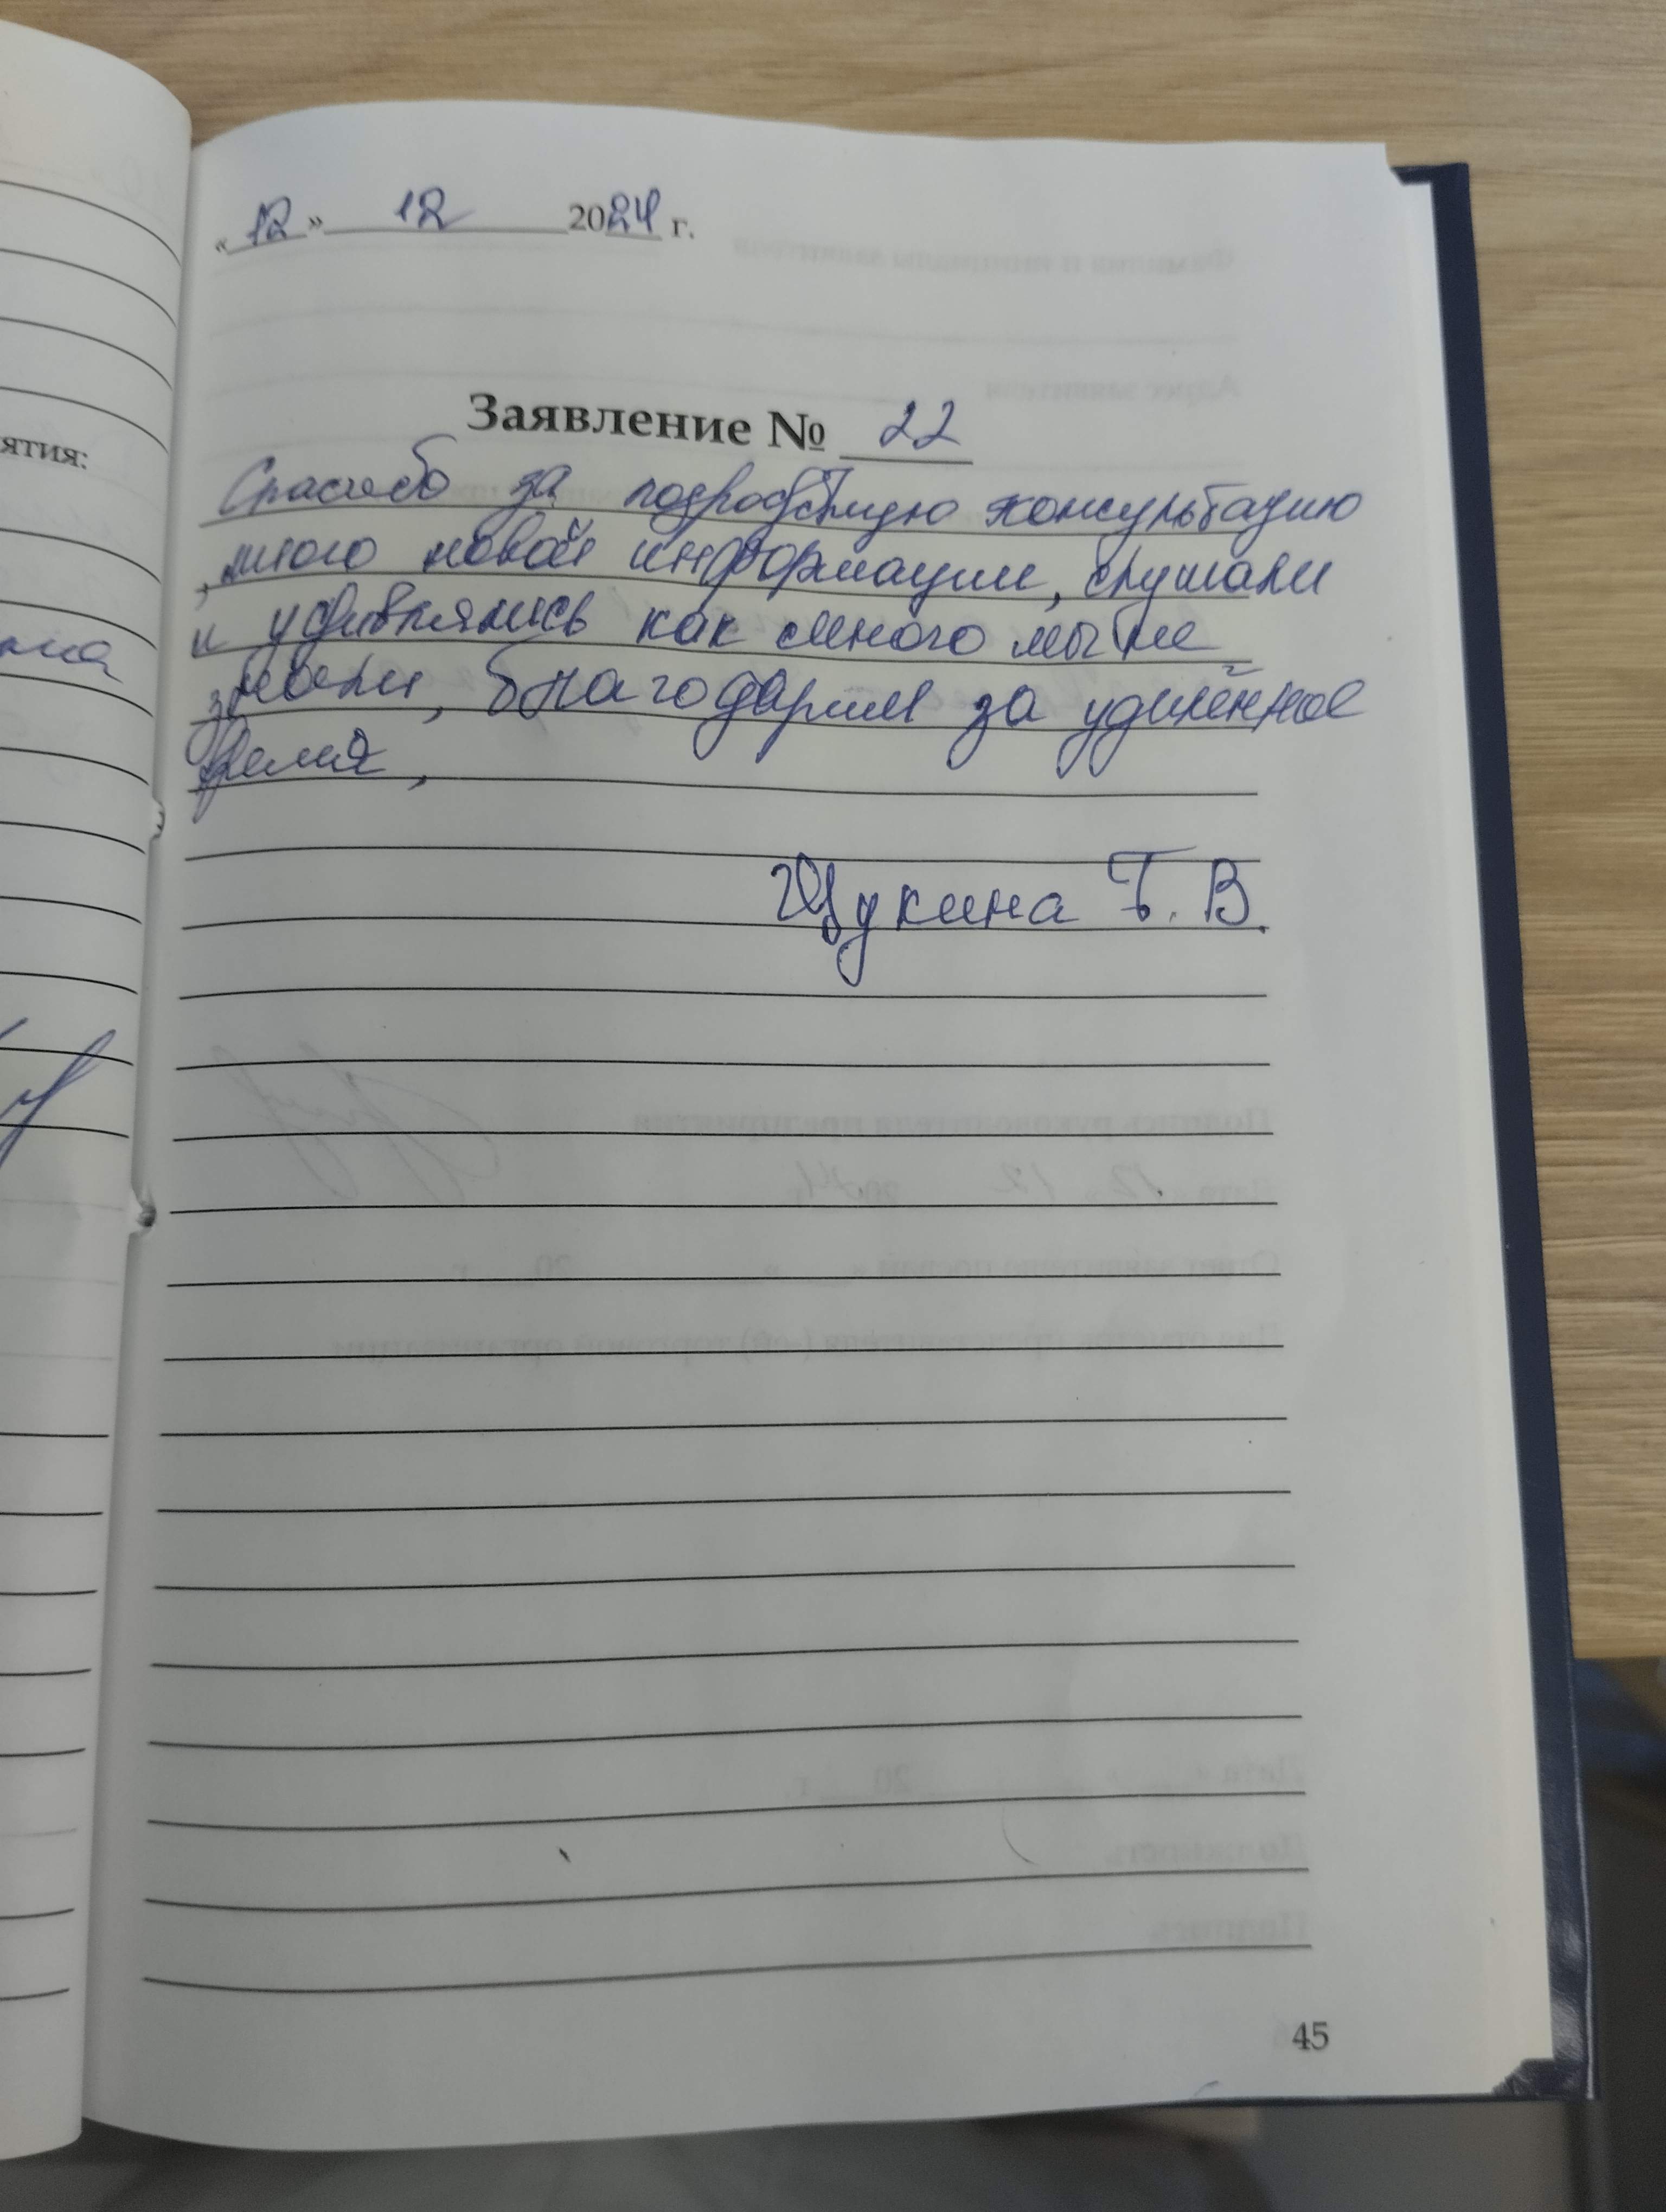 «12» 12 2024 г.
Заявление № 22
Спасибо за подробную консультацию
, много новой информации, слушали
и удивлялись как много мы не
знали, благодарим за уделённое
время,
Щукина Т. В.
45
ятия: